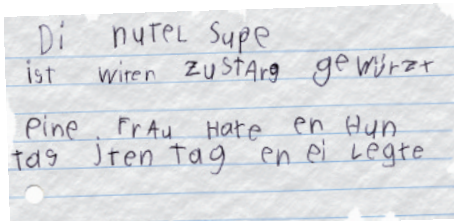 Di nutel Supe
ist wiren zustarg gewürzt
eine Frau Hate en Hun
tag Jten tag en ei Legte